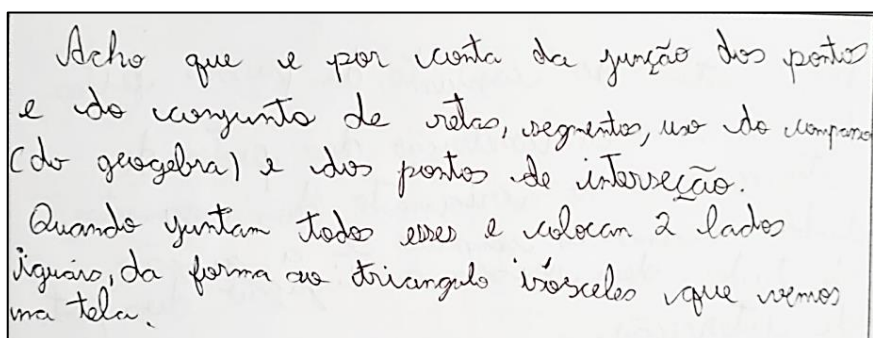 Acho que e por conta da junção dos pontos
e do conjunto de retas, segmentos, uso do compasso
(do geogebra) e dos pontos de interseção.
Quando juntam todos esses e colocan 2 lados
iguais, da forma ao triangulo isósceles que vemos
na tela.